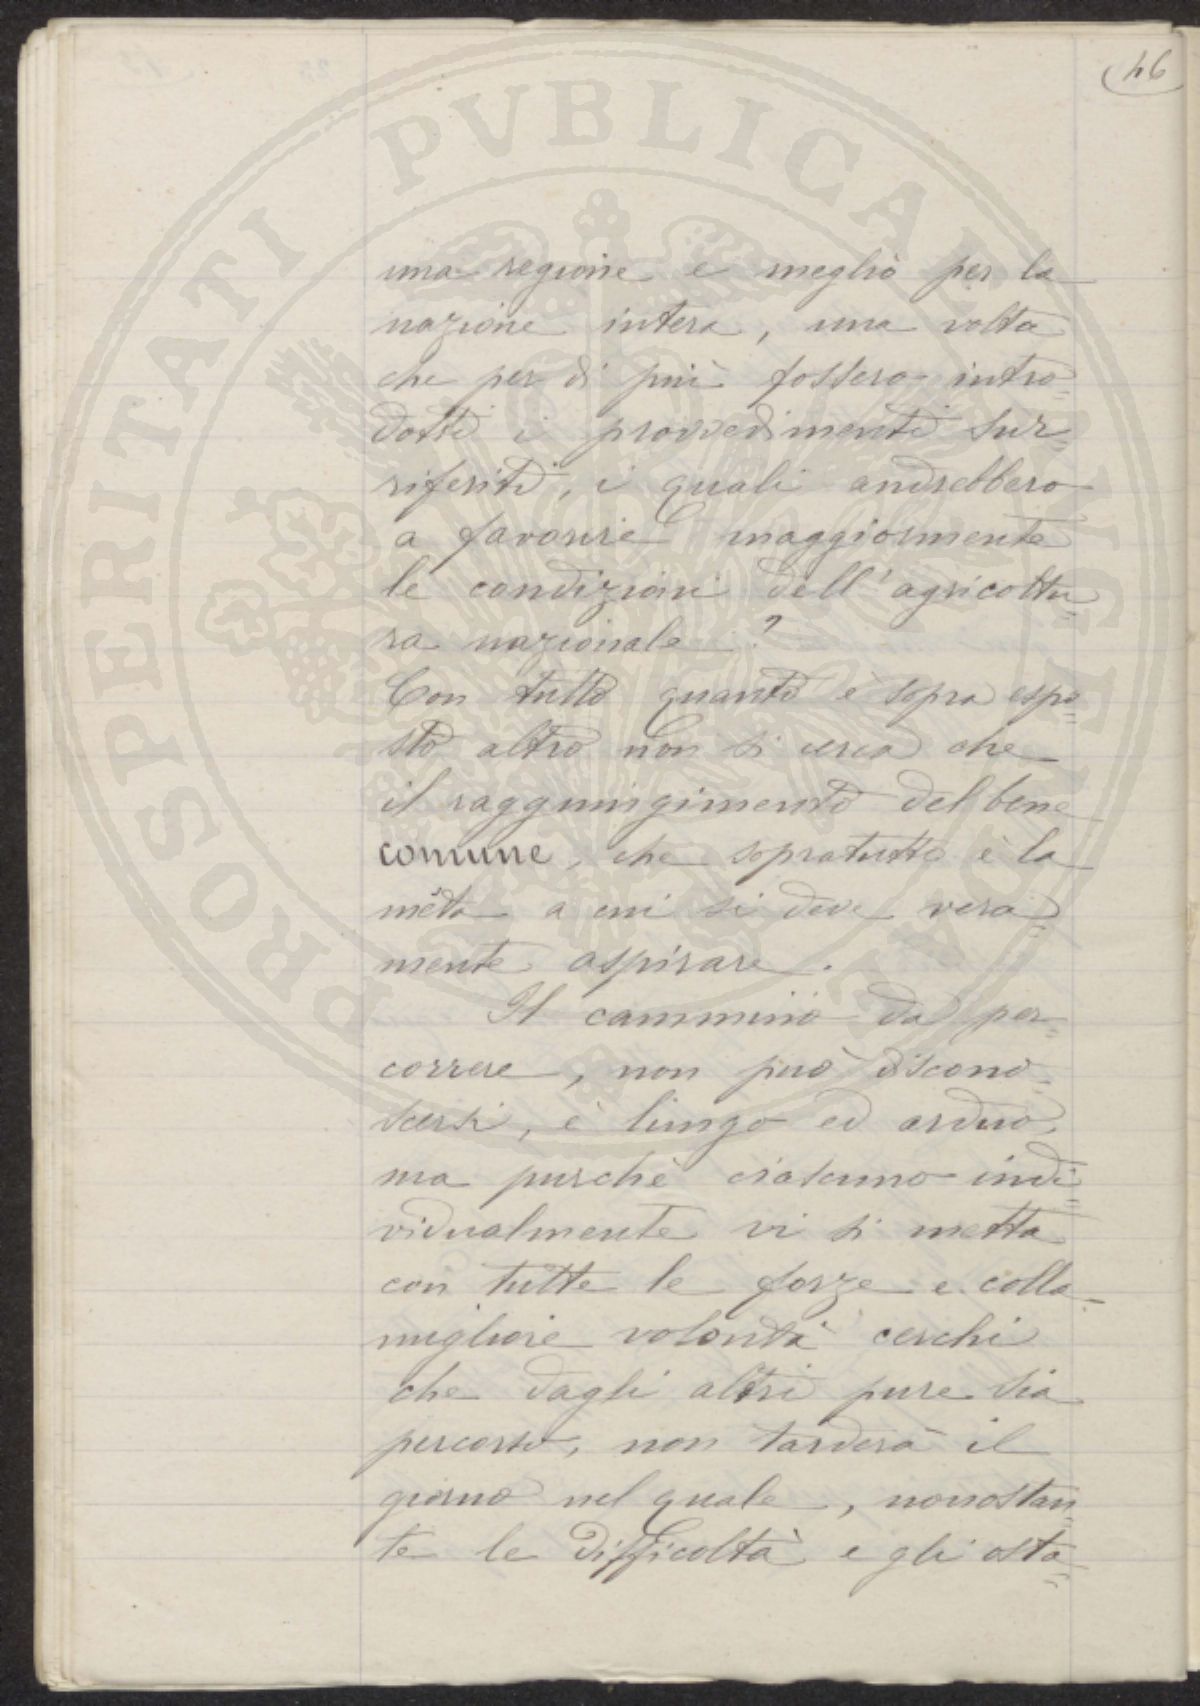 46
una regione e meglio per la
nazione intera, una volta
che per di più fossero intro=
dotti i provvedimenti sur=
riferiti, i quali andrebbero
a favorire maggiormente
le condizioni dell'agricoltu=
ra nazionale?
Con tutto quanto è sopra espo=
sto altro non si cerca che
il raggiungimento del bene
comune, che sopratutto è la
mèta a cui si deve vera=
mente aspirare.
Il cammino da per=
correre, non può discono=
scersi, è lungo ed arduo,
ma purchè ciascuno indi=
vidualmente vi si metta
con tutte le forze e colla
migliore volontà cerchi
che dagli altri pure sia
percorso, non tarderà il
giorno nel quale, nonostan=
te le difficoltà e gli osta=
PROSPERITATI PVBLICAE AVGENDAE